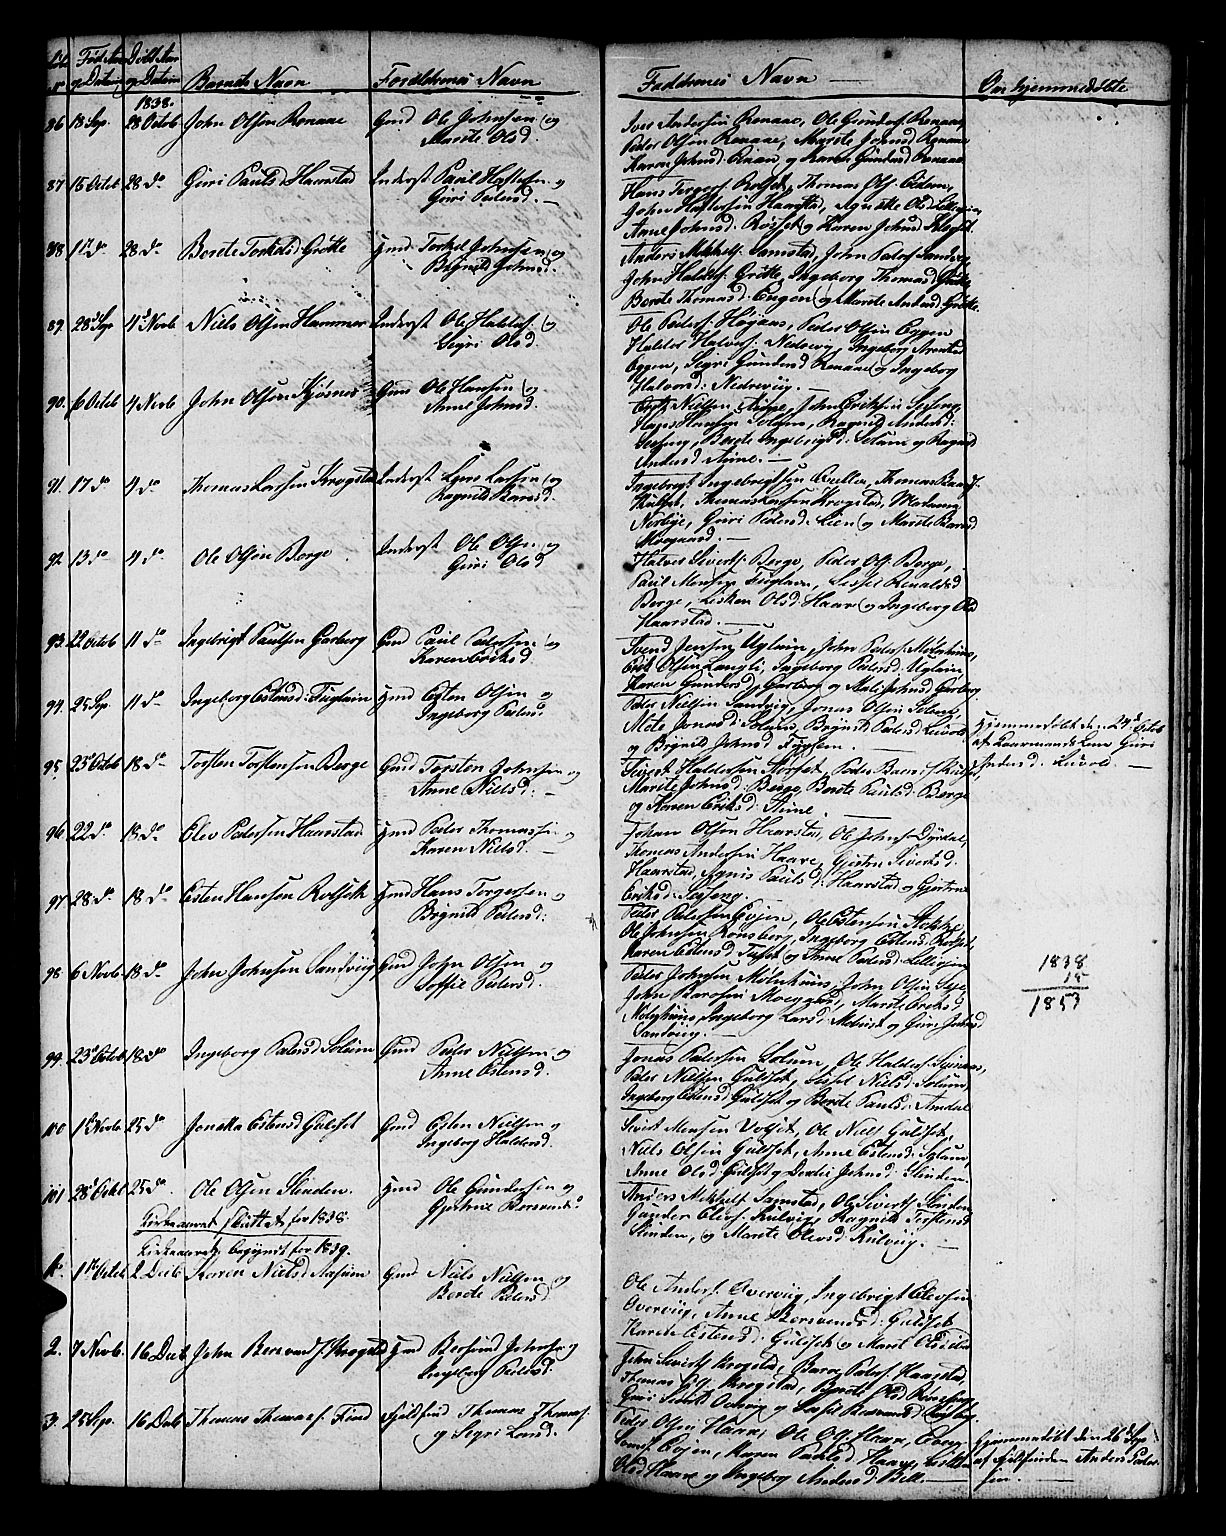 Født Aar og Datum
Døbt Aar og Datum
Barnets Navn
Forældrenes Navn
Faddernes Navn
Om hjemmedøbte
1838.
86 18 Sep. 28 Octob John Olsen Renaae Gmd Ole Johnsen og
Marite Olsd.
Iver Andersen Renaae, Ole Gundersf Renaae,
Peder Olsen Renaae, Marite Johnsd Renaae
Karen Johnsd: Renaae, og Karen Gundersd Renaae
87 15 Octob 28 do Guri Paulsd Haarstad Inderst Paul Haftesen og
Guri Pedersd. —
Hans Torgersf Rolset, Thomas Olsf.
John Haftesen Haarstad, Agnethe Olsd Lillegjen
Anne Johnsd: Rosset og Karen Johnsd
88 1st do 28 do Berete Torkelsd: Grøtte Gmd. Torkel Johnsen og
Brynild Johnsd.
Anders Mikkelsf. Samstad, John Pedersf Sandvig,
John Haldorsf: Grøtte, Ingeborg Thomasd: Grøtte
Berete Thomasd: Engen og Marite Andersd Grøtte
89. 28 Sep 4d Novb. Niels Olsen Hammer Inderst Ole Haldorsf. og
Sigri Olsd.
Ole Pedersf: Høgaas, Peder Olsen Eggen
Haldor Halvorsf. Nedrevig, Ingeborg Arntsd
Eggen, Sigri Gundersd Renaae og Ingeborg
Halvorsd: Nedreviig. —
90. 6 Octob 4 Novb John Olsen Kjøsnes Gmd Ole Hansen og
Anne Johnsd.
Niels Nielsen Aune, John Eriksen Selseng
Hans Hansen Solem, Ragnild Andersd:
Selseng, Berete Ingebrigtsd: Solem og Ragnild
Andersd Aune. —
91. 17 do 4 do Thomas Larsen Krogstad Inderst Lars Larsen og
Ragnild Larsd.
Ingebrigt Ingebrigtsen Qvello, Thomas
Kulset, Thomas Larsen Krogstad,
Norbye, Guri Pedersd: Lien og Marit Larsd
Moegaard. —
92. 13 do 4 do Ole Olsen Berge Inderst Ole Olsen og
Guri Olsd
Halvor Sivertsf: Berge, Peder Olsf: Berge,
Paul Monsen Fuglaan, Sissel Renaldsd
Berge, Lisken Olsd: Haare og Ingeborg Olsd
Haarstad. —
93. 22 Octob 11 do Ingebrigt Paulsen Garberg Gmd Paul Pedersen og
Karen Eriksd.
Svend Jensen Uglaan, John Pedersf: Mølnhuus,
Erik Olsen Langli, Ingeborg Pedersd: Uglain
Karen Gundersd, Garberg og Mali Johnsd Garberg
94. 25 Sep. 11 do Ingeborg Estensd: Fuglain Gmd Esten Olsen og
Ingeborg Pedersd.
Peder Nielsen Sandvig, Jonas Olsen Selseng,
Mete Jonasd: Solem, Brynild Pedersd: Livold
og Brynild Johnsd Fossem. —
Hjemmedøbt den 29d Octob
af Gaarmands Kone Guri
Andersd: Livold. —
95. 25d Octob 18 do Torsten Torstensen Berge Gmd Torsten Johnsen og
Anne Nielsd: —
Sivert Haldorsen Rosset, Peder
Marite Johnsd: Berge, Berete Paulsd: Berge
og Karen Eriksd: Aune.
96 22 do 18 do Elev Pedersen Haarstad Gmd Peder Thomassen og
Karen Nielsd. —
Johan Olsen Haarstad, Ole Johnsf: Dyrdal,
Thomas Andersen Haare, Gjertru Siversd:
Haarstad, Agnis Paulsd: Haarstad og Gjertru
Eriksd: Selseng. —
97 28 do 18 do Esten Hansen Rolseth Gmd Hans Torgersen og
Brynild Pedersd:
Peder Pedersen Evjen, Ole Estensen Stokke
Ole Johnsen Rønsberg, Ingeborg Estensd: Rolset,
Karen Estensd: Tuset og Anne Pedersd: Lillegjen
98. 6 Novb 18 do John Johnsen Sandviig Gmd John Olsen og
Soffie Pedersd.
Peder Johnsen Mølnhuus, John Olsen
John Larsen Moegaard, Marit Eriksd:
Mølnhuus, Ingeborg Larsd: og Guri Johnsd
Sandviig. —
1838
15
1853
99. 23d Octob 18 do Ingeborg Pedersd Solem Gmd Peder Nielsen og
Anne Estensd.
Jonas Pedersen Solum, Ole Haldorsf: Seimaas,
Peder Nielsen Gulset, Sissel Nielsd: Solum,
Ingeborg Estensd Gulset og Berete Paulsd: Amdal
100 1st Novb 25 do Jonetta Estensd Gulset Gmd Esten Nielsen og
Ingeborg Haldorsd.
Sivert Monsen Volset, Ole Nielsf Gulset,
Niels Olsen Gulset, Anne Estensd: Solum,
Anne Olsd: Gulset og Dordi Johnsd: Slinden.
101 28d Octob 25 do. Ole Olsen Slinden. Gmd Ole Gundersen og
Gjertrue Bersvends:
Anders Mikkelsf Samstad, Ole Sivertsf: Slinden
Gunder Olevsf. Kulvig, Ragnild Torstensd
Slinden, og Marite Olevsd: Kulviig. —
Kirkeaaret sluttet for 1838.
Kirkeaaret begyndt for 1839.
1. 1st Octob 2 Decb Karen Nielsd Aasum Gmd Niels Nielsen og
Berete Pedersd
Ole Andersf. Overviig, Ingebrigt Elevsen
Overviig, Anne Bersvendsd: Gulset
Karen Estensd: Gulset og Marit Olsd:
2. 7 Novb. 16 Decb John Bersvendsf Krogstad Gmd Bersvend Johnsen og
Ingeborg Pedersd.
John Sivertsf Krogstad, Baro Pedersf Haarstad,
Thomas Olsf. Krogstad, Berete Olsd Rønsberg,
3. 25 Sep. 16 Decb Thomas Thomasf. Find Fjelfind Thomas Thomasf.
og Sigri Larsd.
Peder Olsen Haare, Ole Olsf. Haare,
Evjen, Karen Paulsd: Haare,
Olsd Haare og Ingeborg Andersd: Bell. —
Hjemmedøbt den 26d Sep
af Fjelfinden Anders Peder-
sen. —